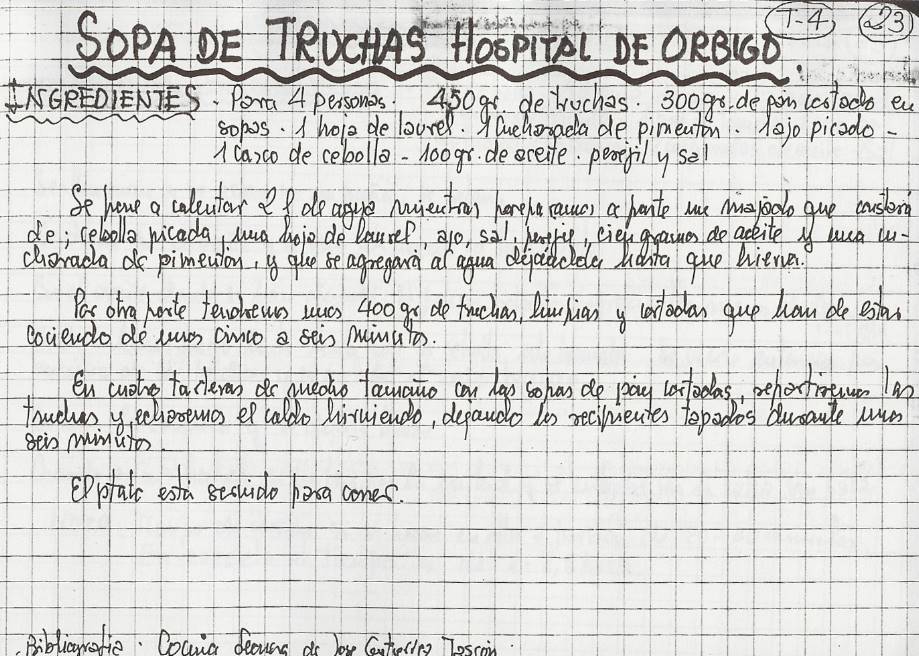 T-4 23
SOPA DE TRUCHAS HOSPITAL DE ORBIGO.
INGREDIENTES. Para 4 personas. 450 gr. de truchas. 300 gr. de pan cortado en
sopas. 1 hoja de laurel. 1 Cucharada de pimenton. 1 ajo picado -
1 Casco de cebolla - 100 gr. de aceite. perejil y sal
Se pone a calentar 2 l de agua mientras preparamos a parte un majado que constará
de; cebolla picada, una hoja de laurel, ajo, sal, perejil, cien gramos de aceite y una cu-
charada de pimentón, y que se agregará al agua dejandola hasta que hierva.
Por otra parte tendremos unos 400 gr de truchas, limpias y cortadas que han de estar
cociendo de unos cinco a seis minutos.
En cuatro tarteras de medio tamaño con las sopas de pan cortadas, repartiremos las
truchas y echaremos el caldo hirviendo, dejando los recipientes tapados durante unos
seis minutos.
El plato está servido para comer.
. Bibliografia. Cocina de Jose Gutierrez Tascón.